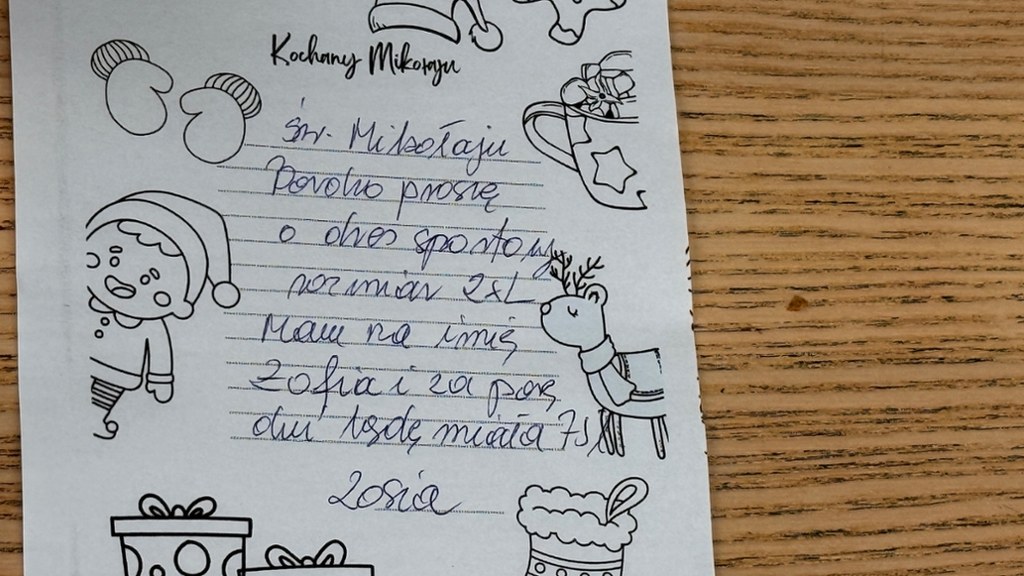 Kochany Mikołaju
św. Mikołaju
Bardzo proszę
o dres sportowy
rozmiar 2xL
Mam na imię
Zofia i za parę
dni będę miała 75
Zosia